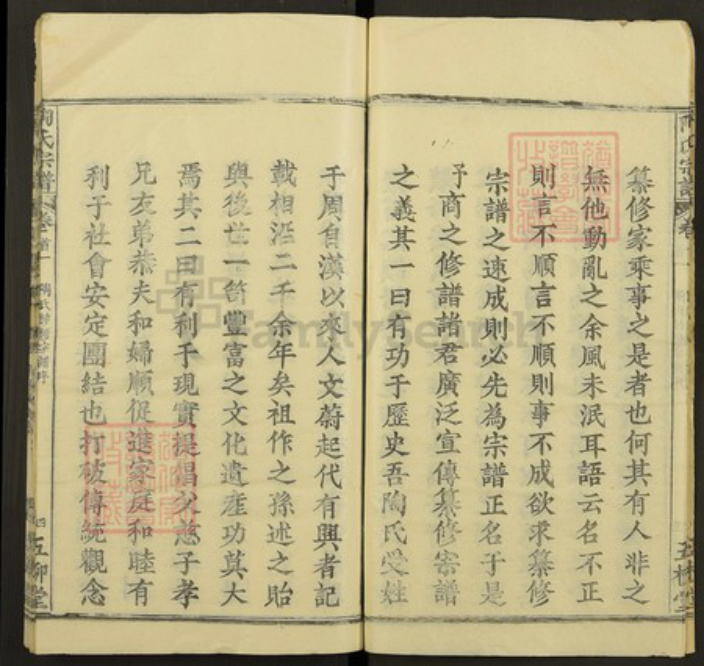 纂修家乘事之是者也何其有人非之
無他動亂之余風未泯耳語云名不正
則言不順言不順則事不成欲求纂修
宗譜之速成則必先為宗譜正名于是
予商之修譜諸君廣泛宣傳纂修宗譜
之義其一曰有功于歷史吾陶氏受姓
于周自漢以來人文蔚起代有興者記
載相沿二千余年矣祖作之孫述之貽
與後世一筍豐富之文化遺産功莫大
焉其二曰有利于現實提倡父慈子孝
兄友弟恭夫和婦順促進家庭和睦有
利于社會安定團結也打破傳統觀念
陶氏宗譜
卷首一
四
五柳堂
FamilySearch